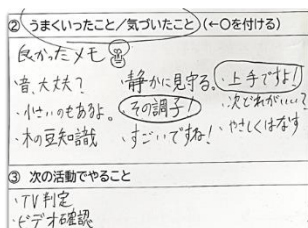 ② うまくいったこと/気づいたこと (←○を付ける)
良かったメモ
・音、大丈夫? ・静かに見守る。 ・上手ですよ!
・小さいのもあるよ。 その調子! ・次どれがいい?
・木の豆知識 ・すごいですね! ・やさしくはなす
③ 次の活動でやること
・TV判定
・ビデオ確認